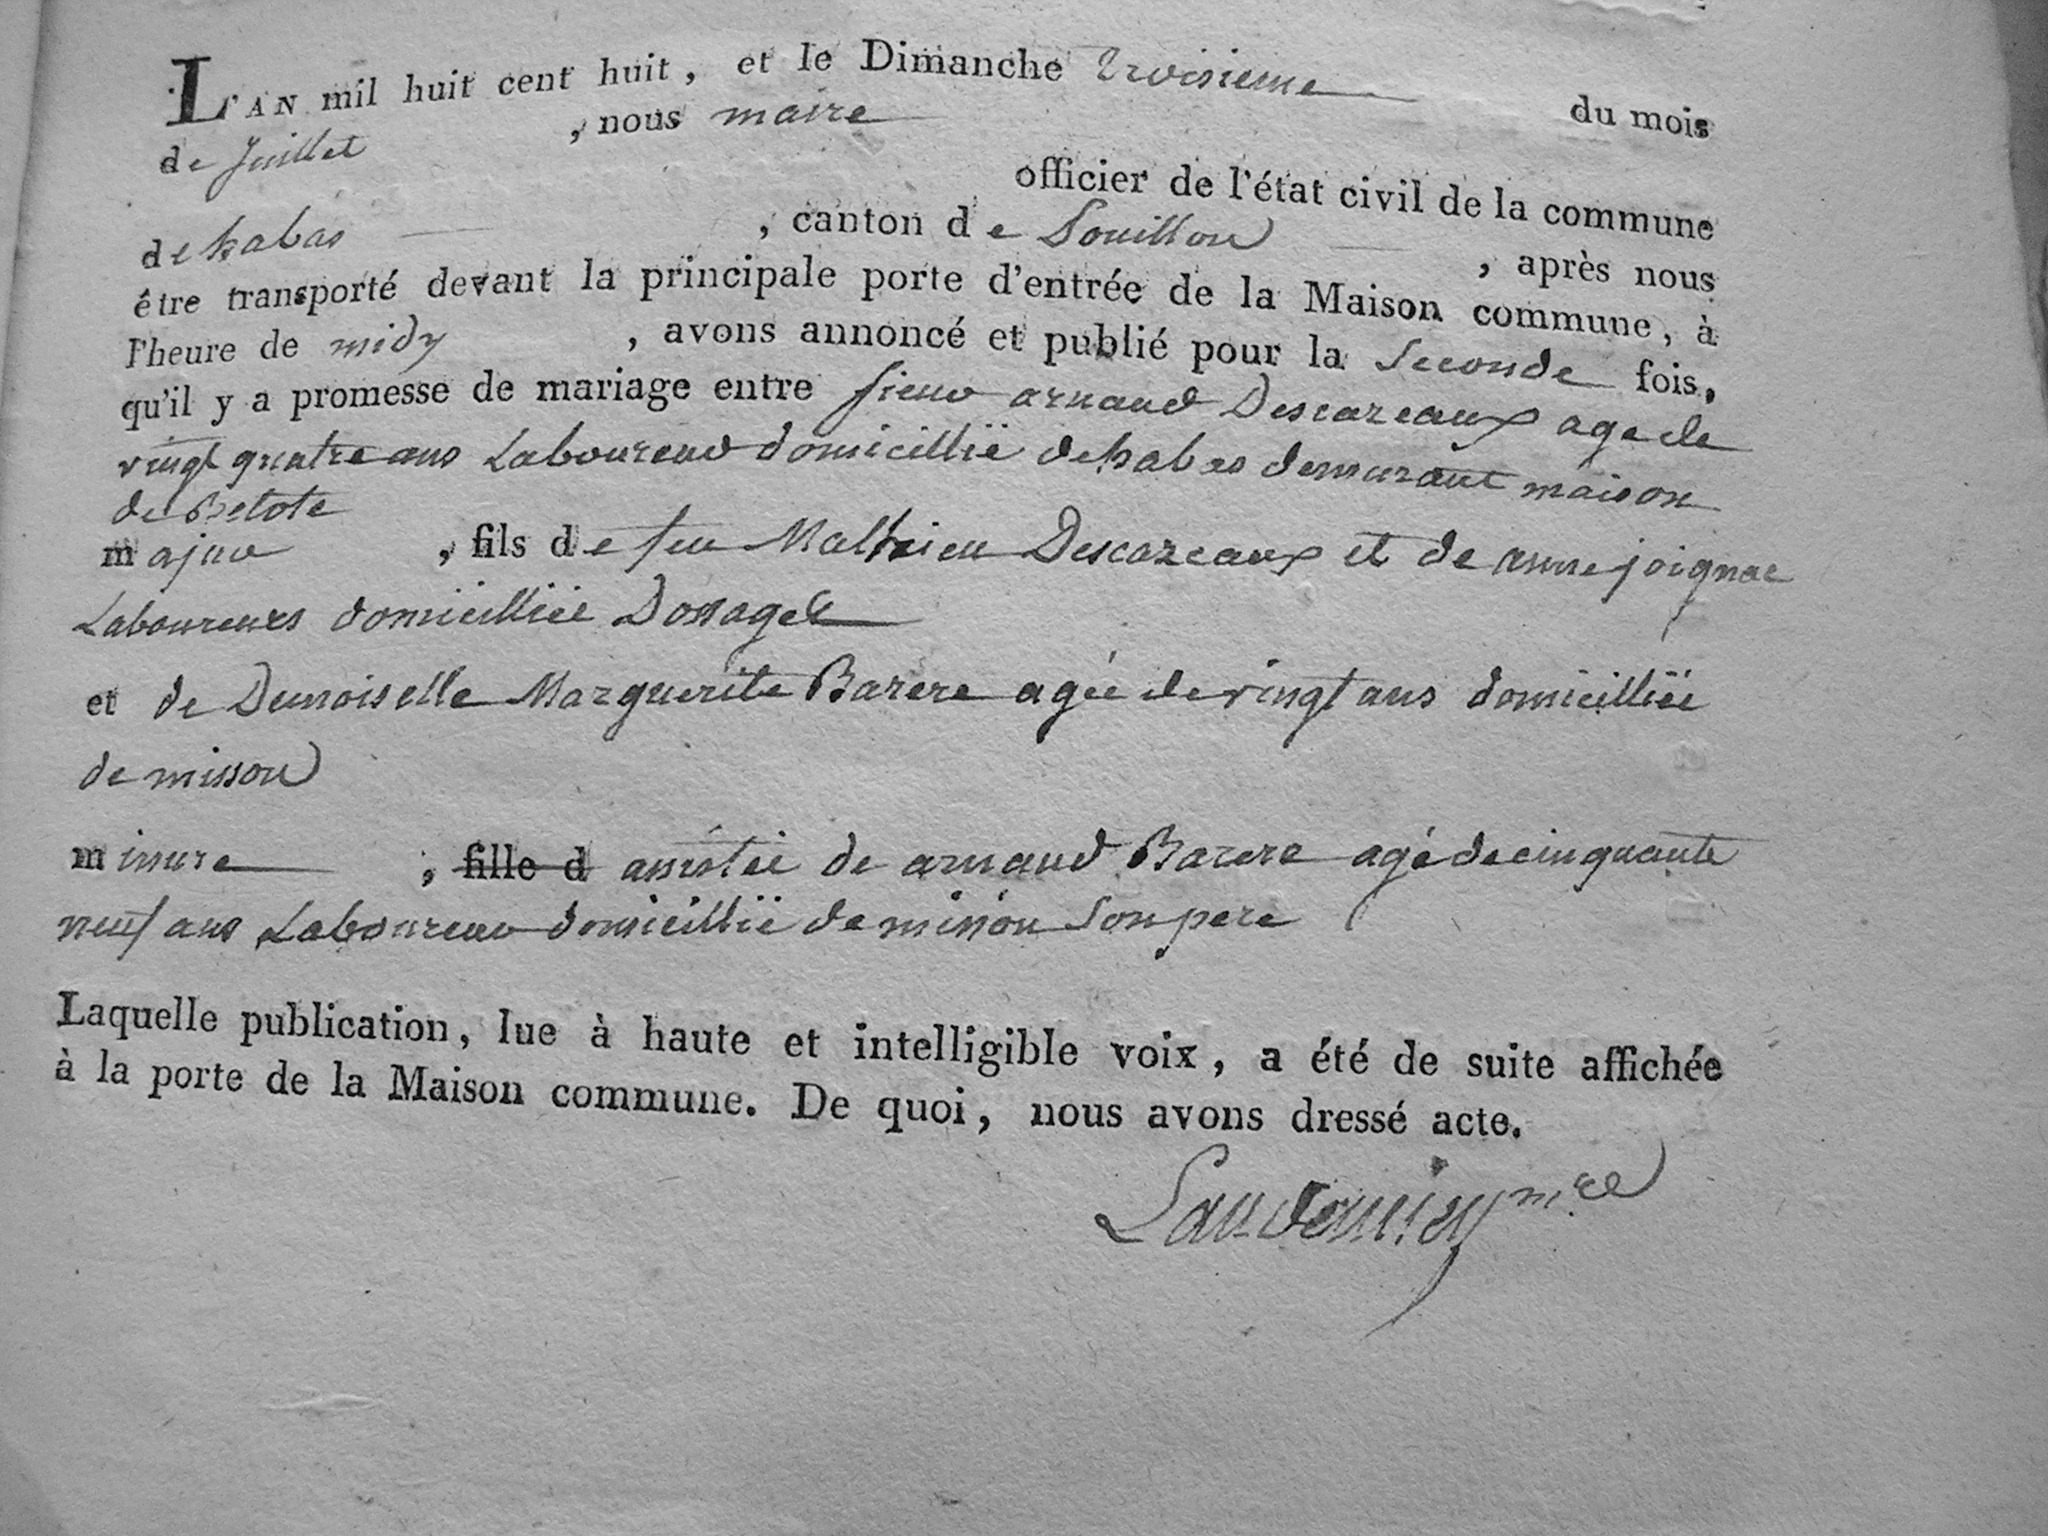 L'AN mil huit cent huit, et le Dimanche troisieme du mois
de Juillet , nous maire
officier de l'état civil de la commune
de habas , canton de Pouillon , après nous
être transporté devant la principale porte d'entrée de la Maison commune, à
l'heure de midy , avons annoncé et publié pour la seconde fois,
qu'il y a promesse de mariage entre sieur arnaud Descazeaux age de
vingt quatre ans Laboureur domicillié de habas demurant maison
de Betote
majur , fils de feu Mathieu Descazeaux et de anne joignac
Laboureurs domicilliée Dossages
et de Demoiselle Marguerite Barere agée de vingt ans domicilliée
de misson
minure , fille d assistée de arnaud Barere agé de cinquante
neuf ans Laboureur domicillié de misson son pere
Laquelle publication, lue à haute et intelligible voix, a été de suite affichée
à la porte de la Maison commune. De quoi, nous avons dressé acte.
mre